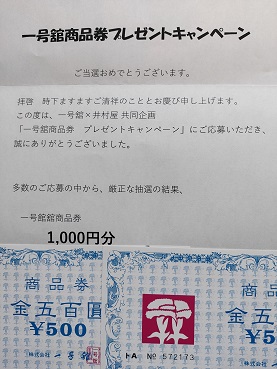 一号舘商品券プレゼントキャンペーン
ご当選おめでとうございます。
拝啓 時下ますますご清祥のこととお慶び申し上げます。
この度は、一号舘×井村屋 共同企画
「一号舘商品券 プレゼントキャンペーン」にご応募いただき、
誠にありがとうございます。
多数のご応募の中から、厳正な抽選の結果、
一号舘舘商品券
1,000円分
商品券
金五百圓
¥500
株式会社 一号舘
トA № 572173
商品券
金五百
¥50
株式会社